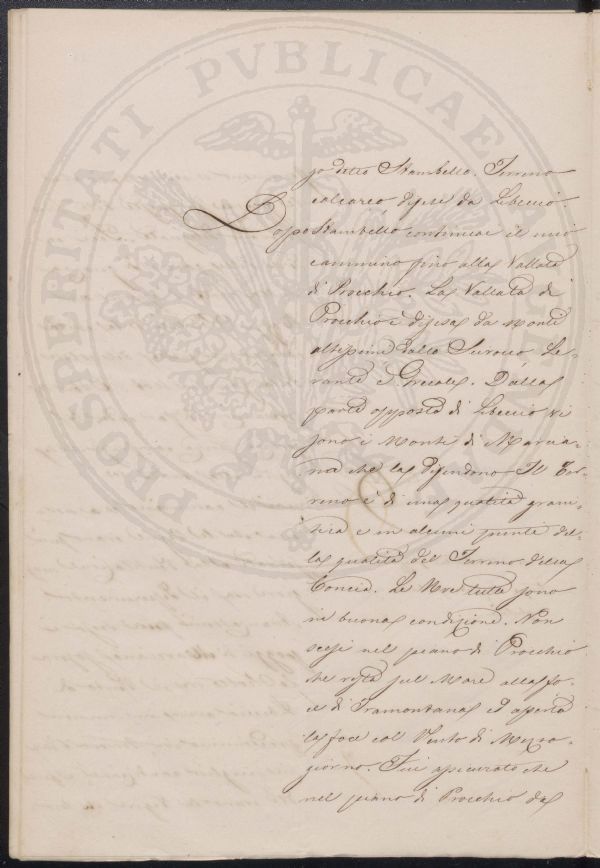 PROSPERITATI PVBLICAE AVGENDAE
so detto Stambello. Terreno
calcareo difese da Libeccio.
Dopo Stambello continuai il mio
cammino fino alla Vallata
di Procchio. La Vallata di
Procchio è difesa da Monti
altissimi dallo Scirocco Le-
vante e Grecale. Dalla
parte opposta di Libeccio vi
sono i Monti di Marcia-
na che la difendono Il Ter-
reno è di una qualità grani-
tica e in alcuni punti del-
la qualità del Terreno della
Concia. Le Uve tutte sono
in buona condizione. Non
scesi nel piano di Procchio
che resta sul Mare alla fo-
ce di Tramontana ed aperta
la foce col Vento di Mezzo-
giorno. Fui assicurato che
nel piano di Procchio da